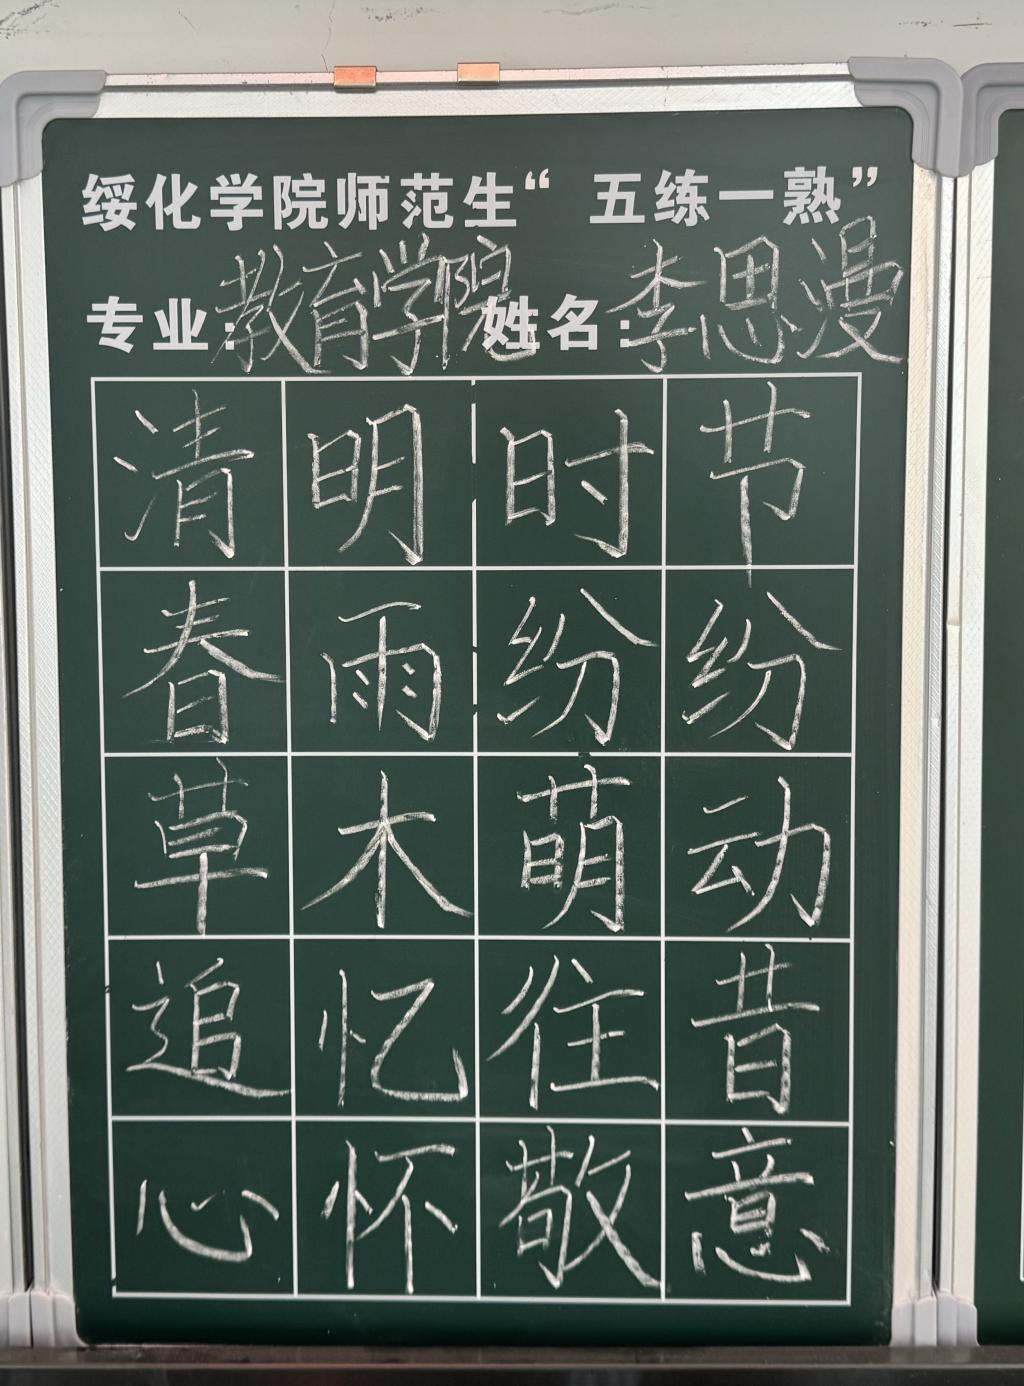 绥化学院师范生“五练一熟”
专业:教育学院 姓名:李思漫
清明时节
春雨纷纷
草木萌动
追忆往昔
心怀敬意